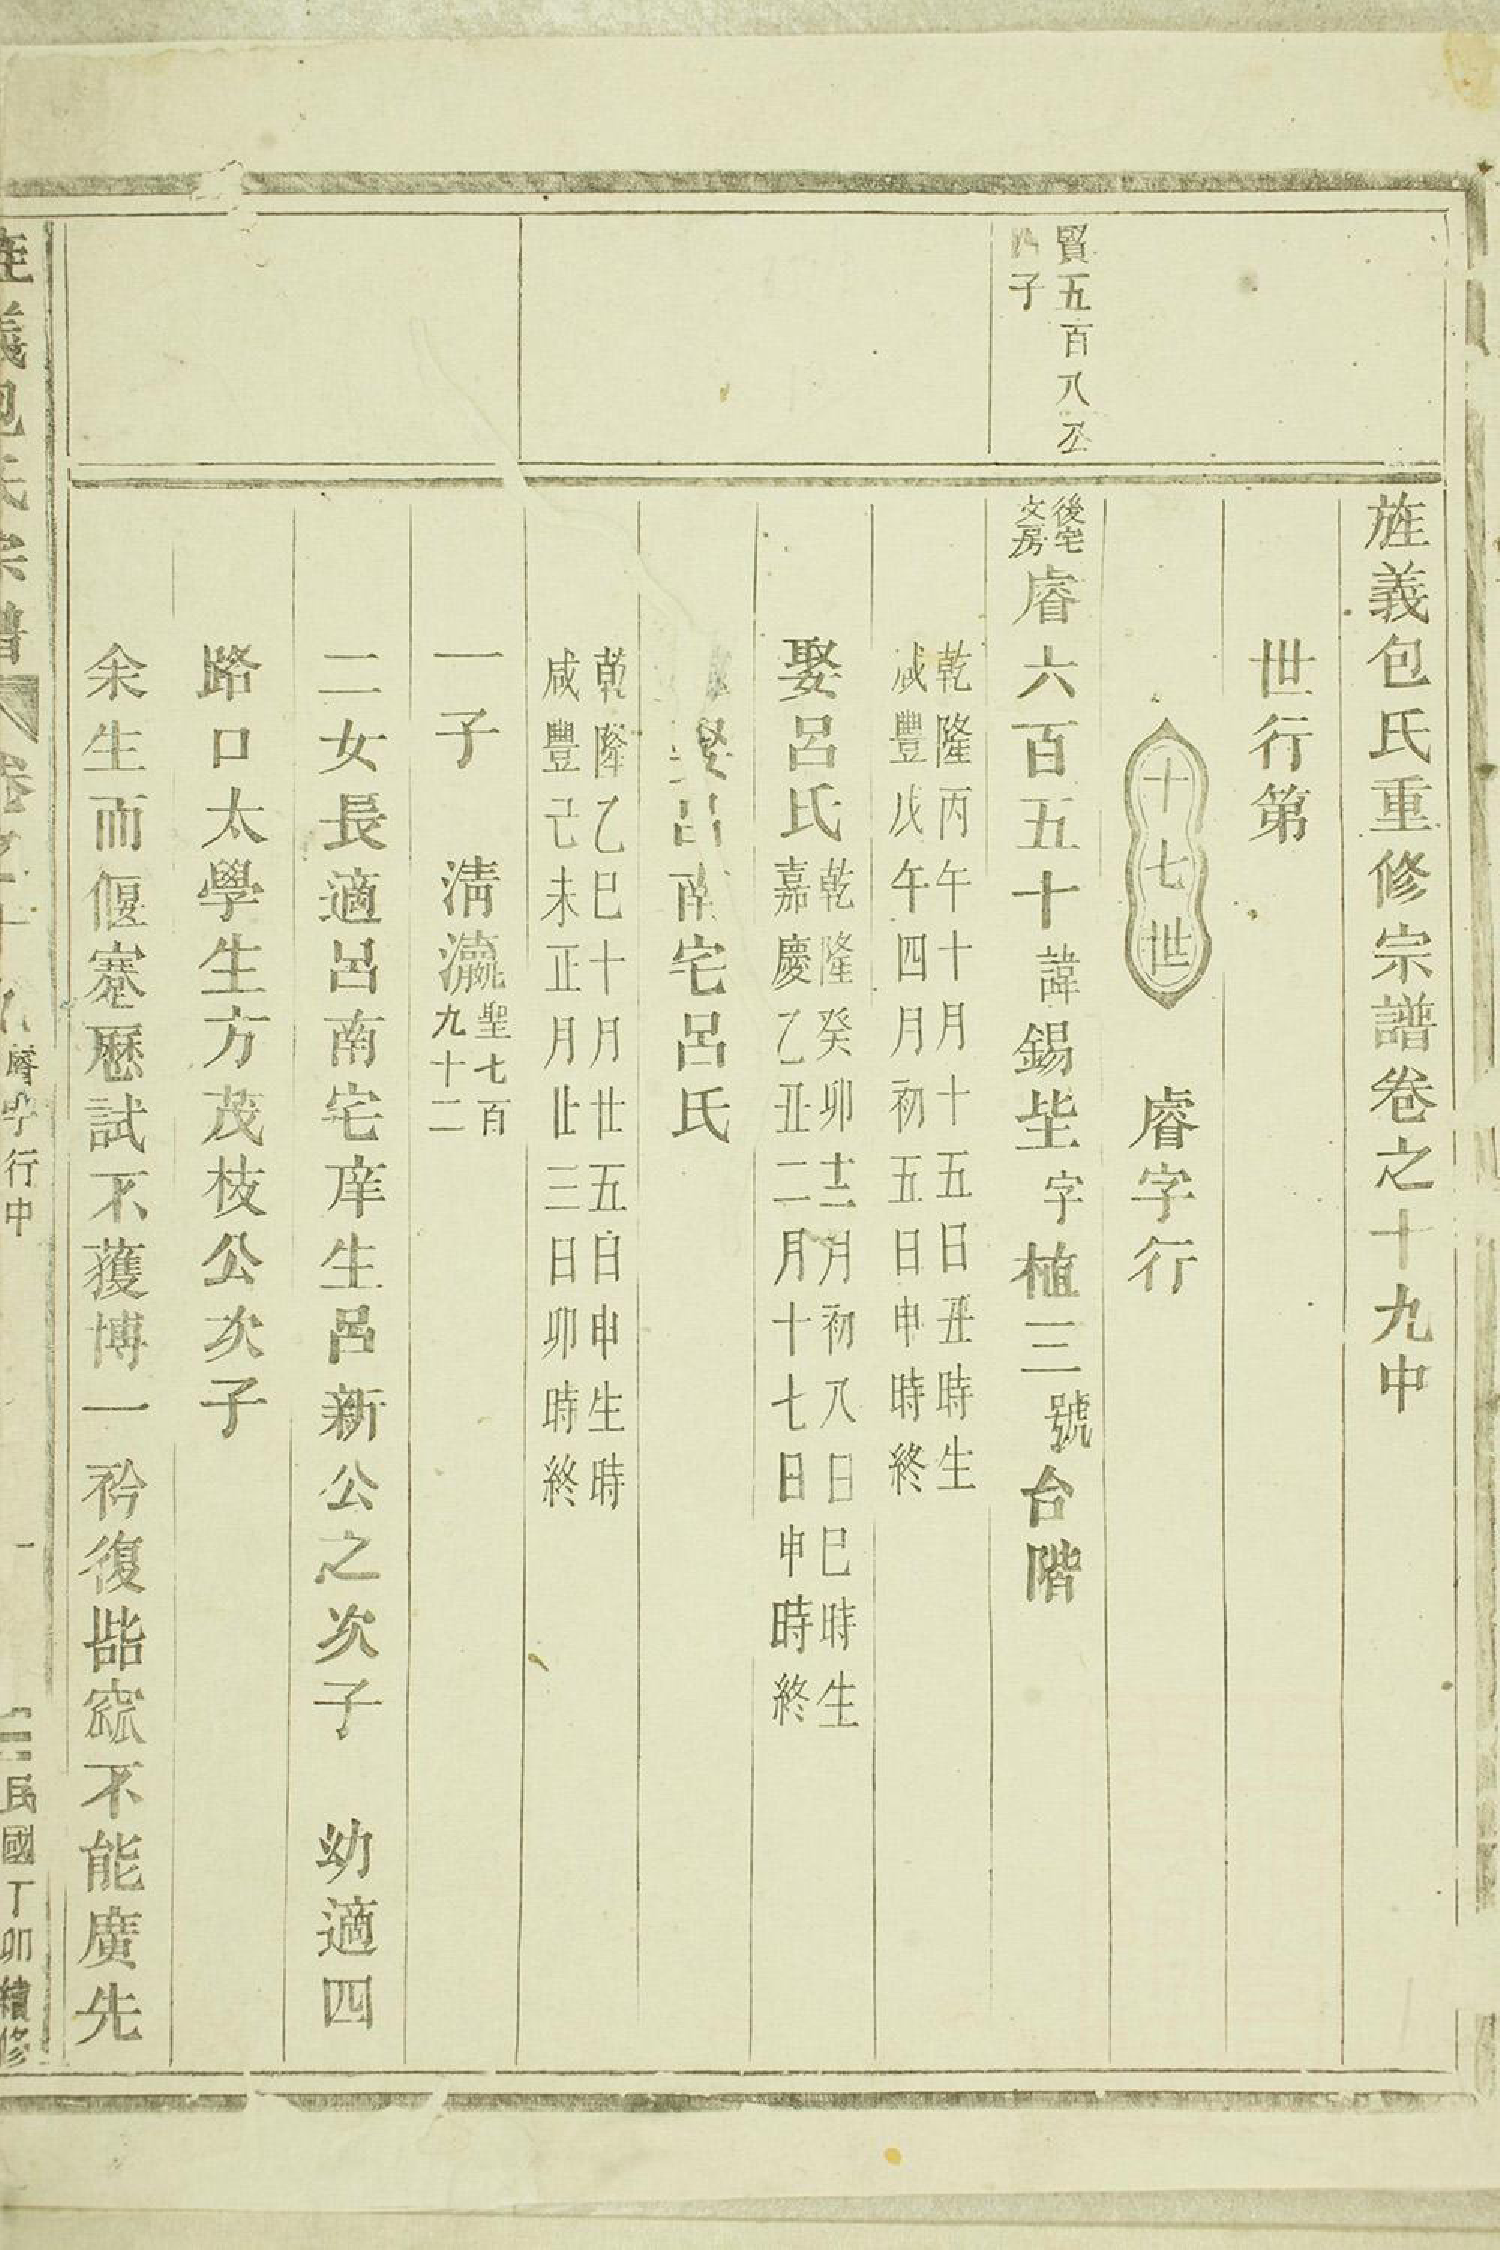 旌義包氏重修宗譜卷之十九中
世行第
十七世　睿字行
賢五百八公
四子
後宅
文房
睿六百五十諱錫坒字植三號台階
乾隆丙午十月十五日丑時生
咸豐戊午四月初五日申時終
娶呂氏
乾隆癸卯十二月初八日巳時生
嘉慶乙丑二月十七日申時終
娶呂南宅呂氏
乾隆乙巳十月廿五日申生時
咸豐己未正月廿三日卯時終
一子　清瀛
聖七百
九十二
二女長適呂南宅庠生呂新公之次子　幼適四
路口太學生方茂枝公次子
余生而偃蹇歷試不獲博一衿復呰窳不能廣先
旌義包氏宗譜　卷之十九　睿字行中　一　民國丁卯續修